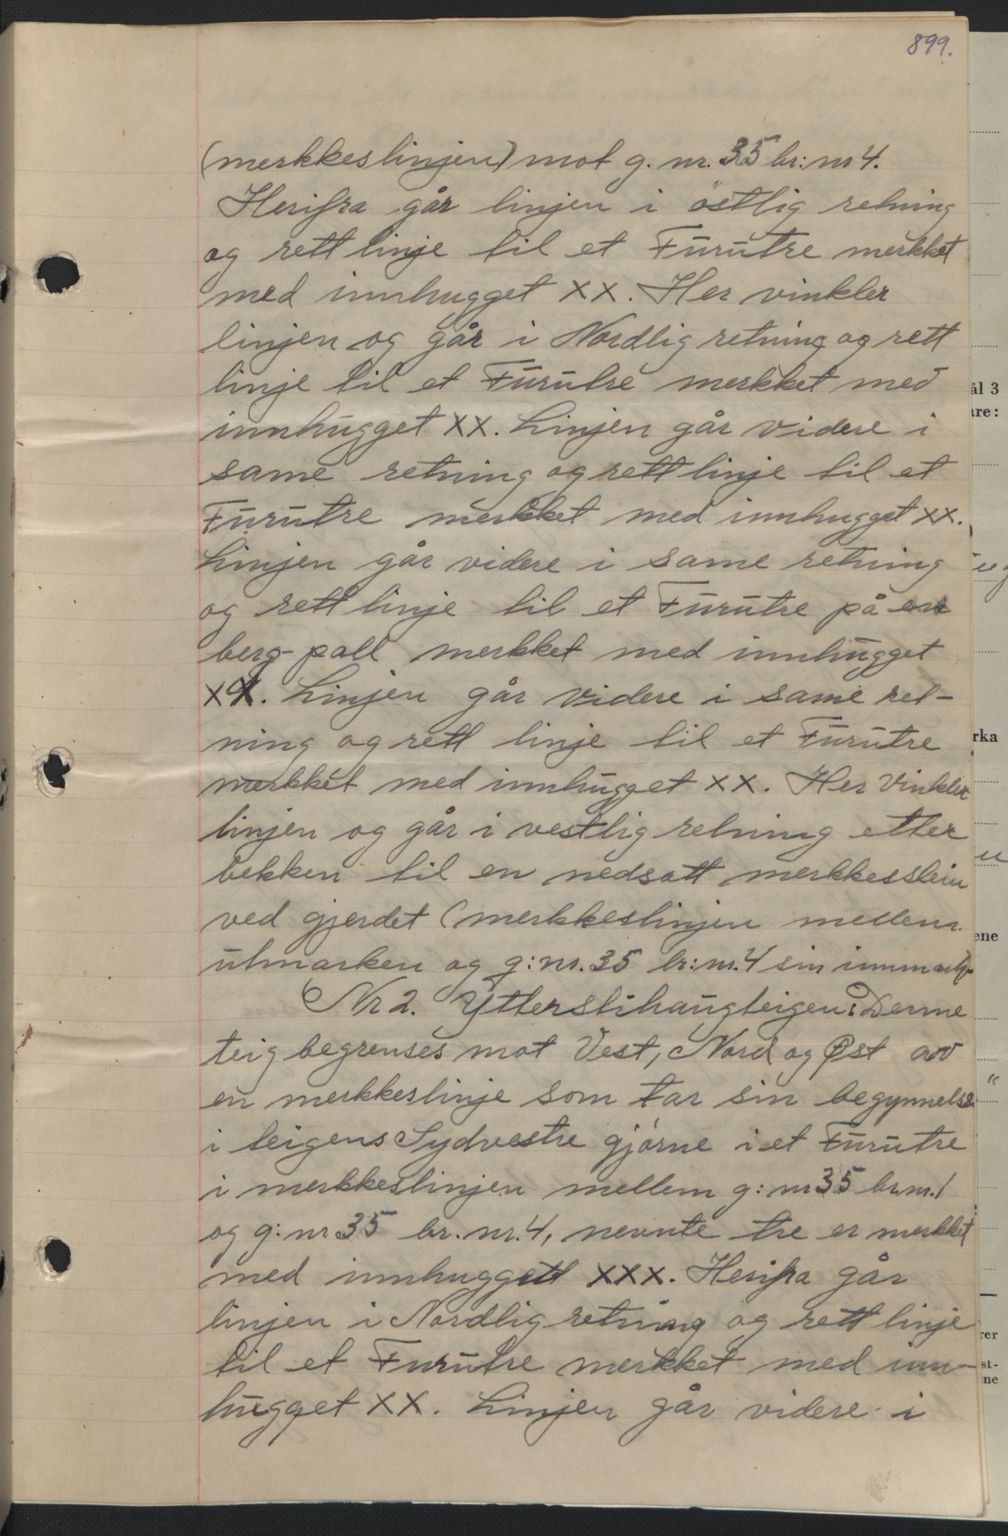 899.
(merkkeslinjen) mot g. nr. 35 br: nr 4.
Herifra går linjen i östlig retning
og rett linje til et Furutre merkket
med innhugget XX. Her vinkler
linjen og går i Nordlig retning og rett
linje til et Furutre merkket med
innhugget XX. Linjen går videre i
same retning og rett linje til et
Furutre merkket med innhugget XX.
Linjen går videre i same retning
og rett linje til et Furutre på en
berg-pall merkket med innhugget
XX. Linjen går videre i same ret-
ning og rett linje til et Furutre
merkket med innhugget XX. Her vinkler
linjen og går i vestlig retning etter
bekken til en nedsatt merkkesstein
ved gjerdet (merkkeslinjen mellem
utmarken og g: nr. 35 br: nr. 4 sin
Nr 2. Ytterstihaugteigen: Denne
teig begrenses mot Vest, Nord og Øst av
en merkkeslinje som tar sin begynnelse
i teigens Sydvestre gjörne i et Furutre
i merkkeslinjen mellem g: nr 35 br. nr. 1
og g: nr 35 br. nr. 4, nevnte tre er merkket
med innhuggett XXX. Herifra går
linjen i Nordlig retning og rett linje
til et Furutre merkket med inn-
hugget XX. Linjen går videre i
ål 3
are:
rka
ene
rer
st-
ne